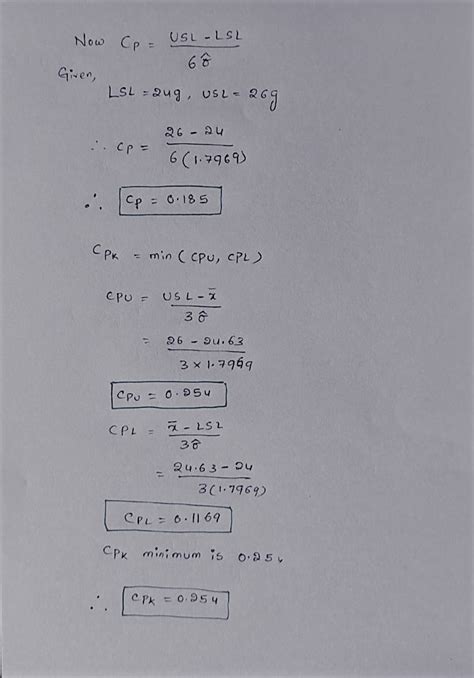 Now Cp = USL - LSL / 6σ̂
Given,
LSL = 24g, USL = 26g
∴ Cp = 26 - 24 / 6(1.7969)
∴ Cp = 0.185
CPK = min (CPU, CPL)
CPU = USL - x̄ / 3σ̂
= 26 - 24.63 / 3 × 1.7969
CPU = 0.254
CPL = x̄ - LSL / 3σ̂
= 24.63 - 24 / 3(1.7969)
CPL = 0.1169
CPK minimum is 0.254
∴ CPK = 0.254